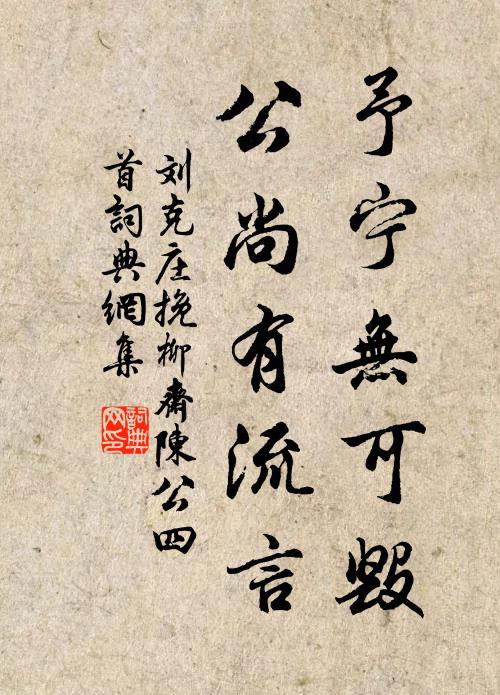 予宁無可毀
公尚有流言
刘克庄挽柳齋陳公四
首詞典網集
詞典
网印